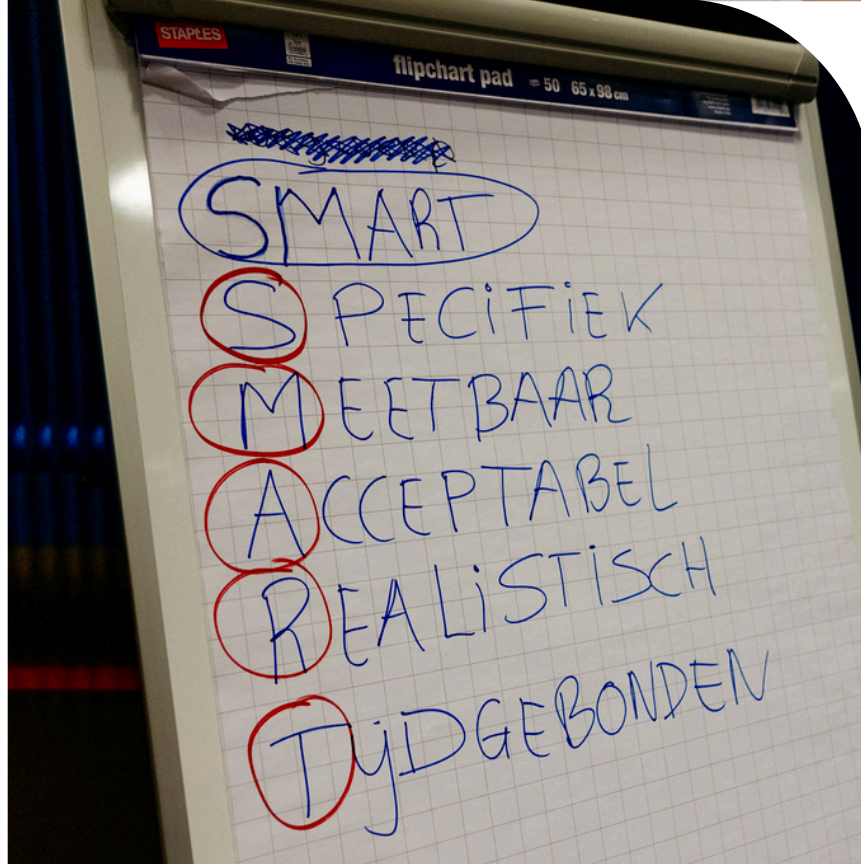 STAPLES
flipchart pad = 50 65 x 98 cm
SMART
SPECiFiEK
MEETBAAR
ACCEPTABEL
REALiSTiSCH
TijDGEBONDEN